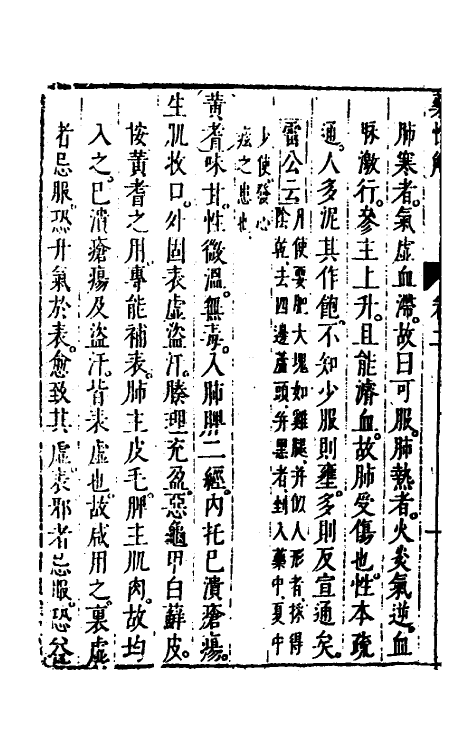 藥性解
卷二
肺寒者。氣虛血滯。故曰可服。肺熱者。火炎氣逆。血
脉激行。參主上升。且能濟血。故肺受傷也。性本疏
通。人多泥其作飽。不知少服則壅。多則反宣通矣。
雷公云
月使要肥大塊如雞腿并似人形者採得
陰乾去四邊蘆頭并黑者剉入藥中夏中
少使發心
痃之患也
黄耆味甘。性微溫。無毒。入肺脾二經。內托已潰瘡瘍。
生肌收口。外固表虛盜汗。腠理充盈。惡龜甲白蘚皮。
按黄耆之用專能補表。肺主皮毛。脾主肌肉。故均
入之。已潰瘡瘍及盜汗。皆表虛也。故咸用之。裏虛
者忌服。恐升氣於表。愈致其虛。表邪者忌服。恐益